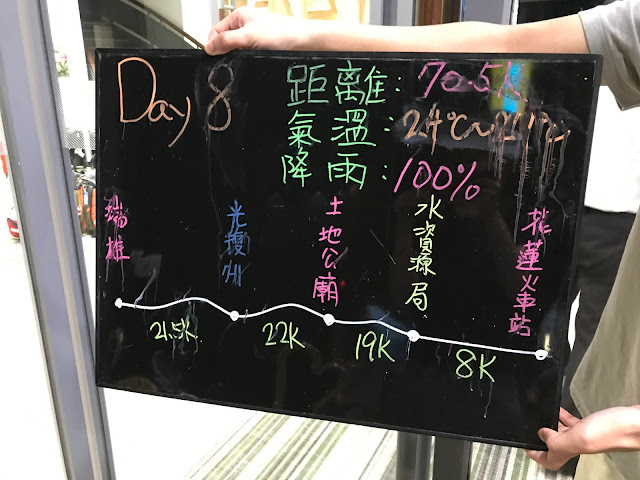 Day 8
距離：70.5K
氣溫：24℃~
降雨：100%
瑞雄
土地公廟
水資源局
花蓮火車站
21.5K
22K
19K
8K